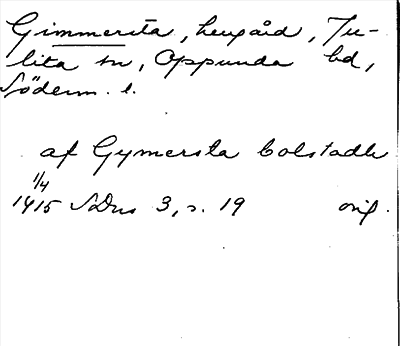 Gimmersta, herrgård, Ju-
lita sn, Oppunda hd,
Söderm. l.
af Gymersta bolstadh
1/4
1415 SDns 3, s. 19 orig.